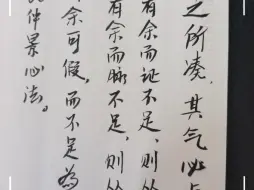 之所凑，其气必
有余而证不足，则
有余而脉不足，则
余可假，而不足为
仲景心法。